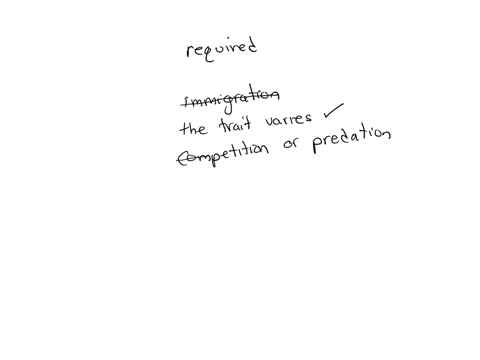 required
Immigration
the trait varres ✓
Competition or predation